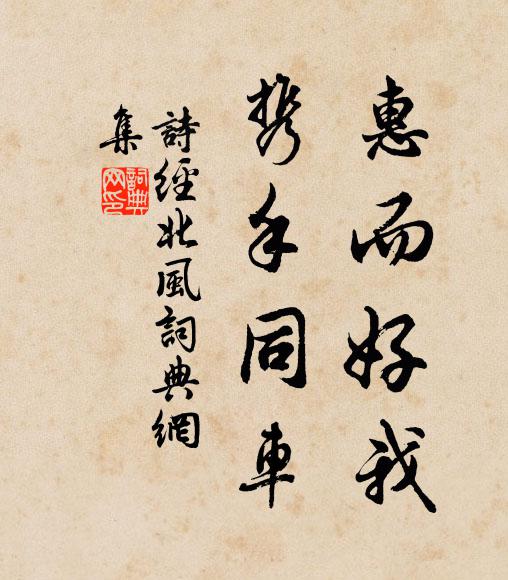 惠而好我
携手同車
詩經北風詞典網
集
詞典
网印